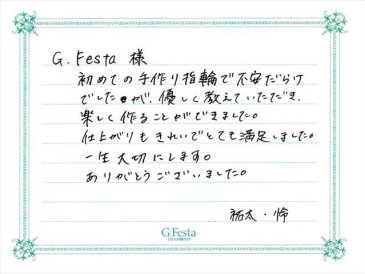 G.Festa 様
初めての手作り指輪で不安だらけ
でしたが、優しく教えていただき、
楽しく作ることができました。
仕上がりもきれいでとても満足しました。
一生大切にします。
ありがとうございました。
祐太・怜
G.Festa
DIAMOND